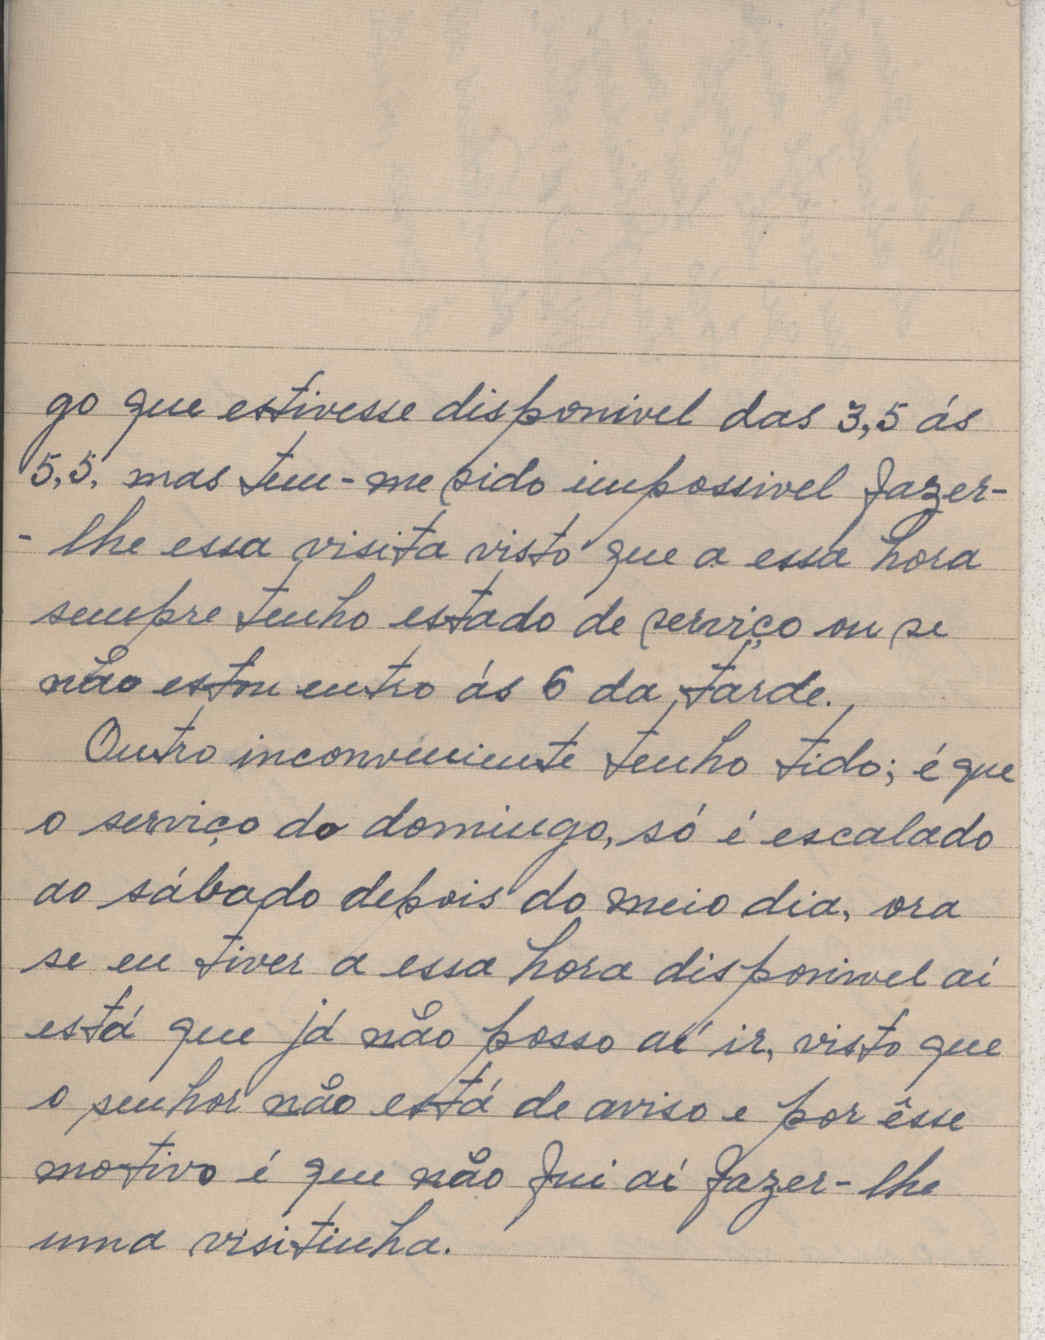 go que estivesse disponivel das 3,5 ás
5,5, mas tem-me sido impossivel fazer-
-lhe essa visita visto que a essa hora
sempre tenho estado de serviço ou se
não estou entro ás 6 da tarde.
Outro inconveniente tenho tido; é que
o serviço do domingo, só é escalado
ao sábado depois do meio dia, ora
se eu tiver a essa hora disponivel aí
está que já não posso aí ir, visto que
o senhor não está de aviso e por êsse
motivo é que não fui aí fazer-lhe
uma visitinha.